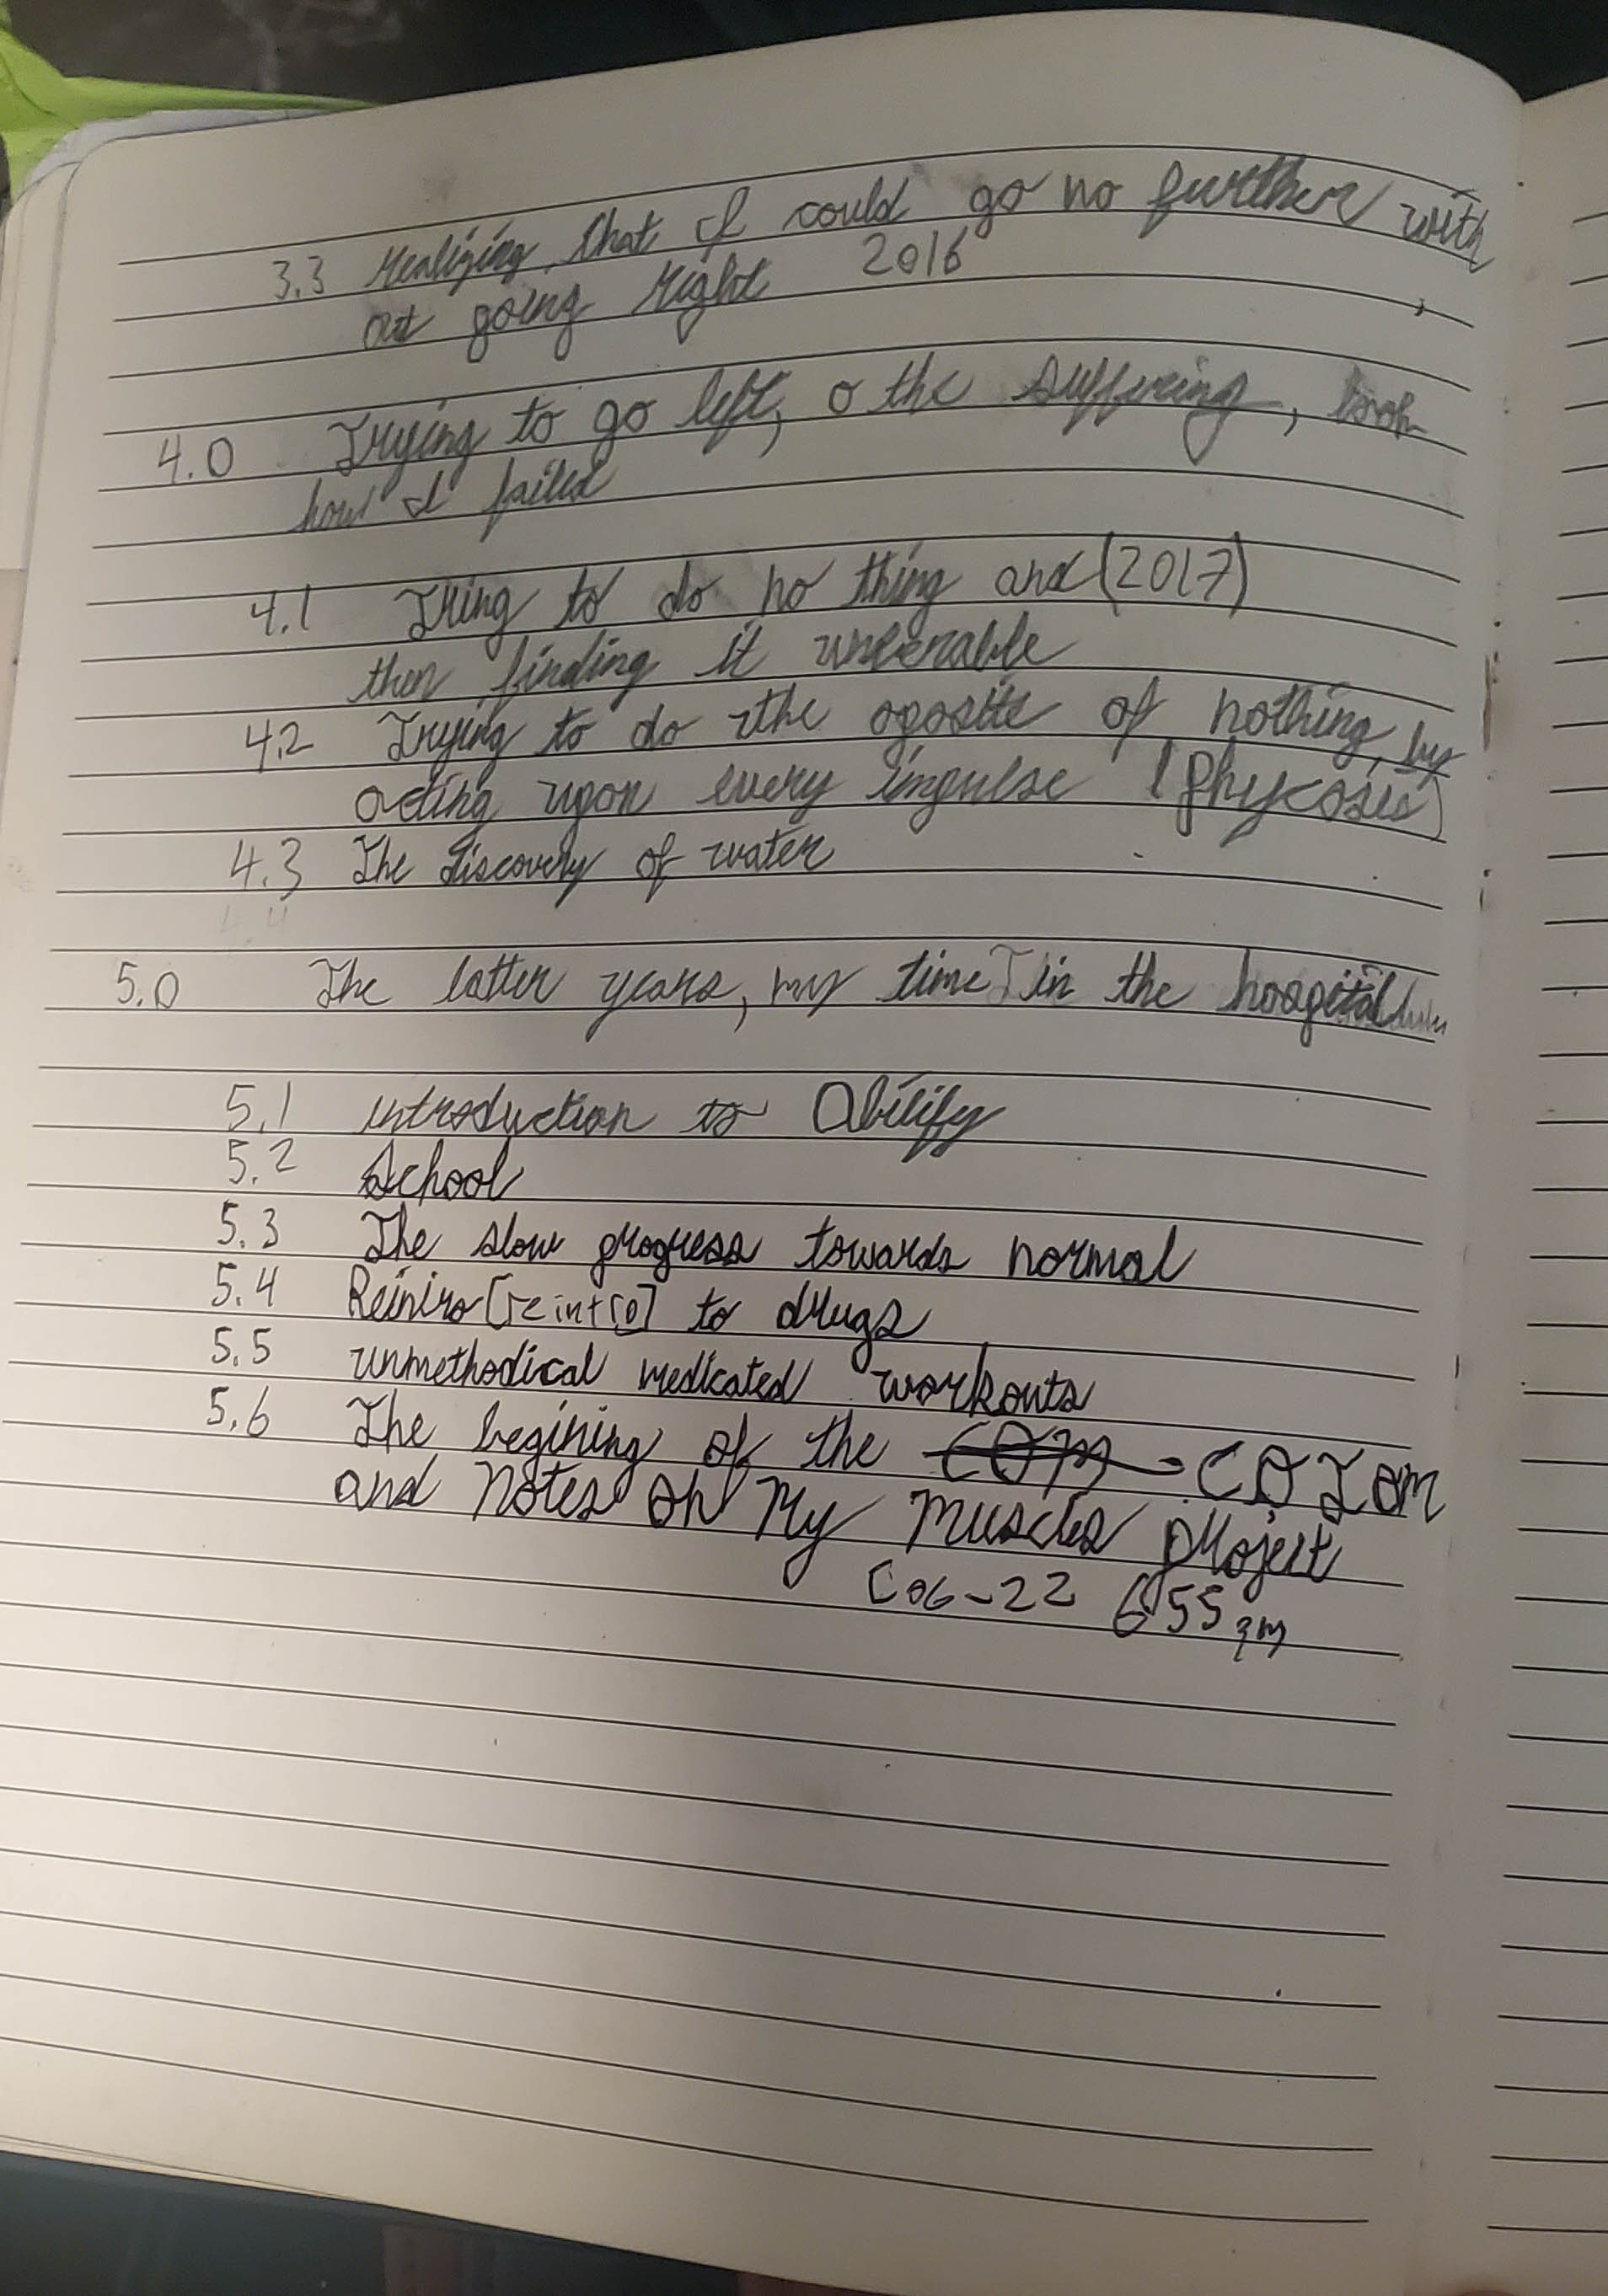 3.3 Realizing that I could go no further with
out going right 2016
4.0 Trying to go left, o the suffering,
how I failed
4.1 Tring to do no thing and (2017)
then finding it unberable
4.2 Trying to do the oposite of nothing, by
acting upon every impulse (phycosis)
4.3 The discovery of water
5.0 The latter years, my time in the hospital
5.1 introduction to Abilify
5.2 School
5.3 The slow progress towards normal
5.4 Reiniro [reintro] to drugs
5.5 unmethodical medicated workouts
5.6 The begining of the COM COIOM
and Notes On My Muscles project
C06-22 655 pm